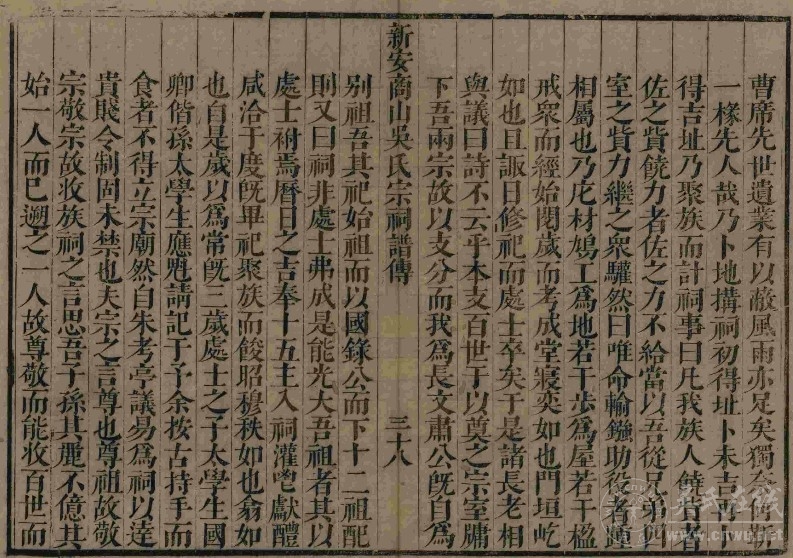 曹席先世遺業有以蔽風雨亦足矣獨
一椽先人哉乃卜地搆祠初得址卜未吉
得吉址乃聚族而計祠事曰凡我族人饒
佐之貲饒力者佐之力不給當以吾從兄弟四
室之貲力繼之衆驩然曰唯命輸鏹助役者
相屬也乃庀材鳩工爲地若干步爲屋若干楹
戒衆而經始閱歲而考成堂寢奕如也門垣屹
如也且諏日修祀而處士卒矣于是諸長老相
與議曰詩不云乎本支百世于以奠之宗室牖
下吾兩宗故以支分而我爲長文肅公旣自爲
新安商山吳氏宗祠譜傳
三十八
別祖吾其祀始祖而以國錄公而下十二祖配
則又曰祠非處士弗成是能光大吾祖者其以
處士祔焉曆日之吉奉十五主入祠灌鬯獻醴
咸洽于度旣畢祀聚族而餕昭穆秩如也翕如
也自是歲以爲常旣三歲處士之子太學生國
卿偕孫太學生應魁請記于予余按古持手而
食者不得立宗廟然自朱考亭議易爲祠以達
貴賤令制固未禁也夫宗之言尊也尊祖故敬
宗敬宗故收族祠之言思吾子孫其麗不億其
始一人而已遡之一人故尊敬而能收百世而